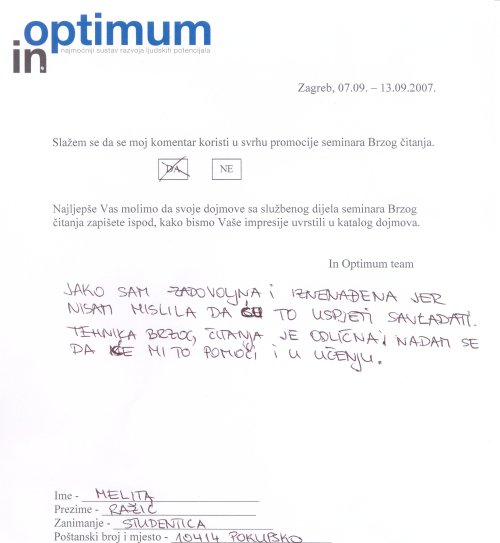 in optimum
najmoćniji sustav razvoja ljudskih potencijala
Zagreb, 07.09. – 13.09.2007.
Slažem se da se moj komentar koristi u svrhu promocije seminara Brzog čitanja.
DA NE
Najljepše Vas molimo da svoje dojmove sa službenog dijela seminara Brzog
čitanja zapišete ispod, kako bismo Vaše impresije uvrstili u katalog dojmova.
In Optimum team
JAKO SAM ZADOVOLJNA I IZNENAĐENA JER
NISAM MISLILA DA ĆU TO USPJETI SAVLADATI.
TEHNIKA BRZOG ČITANJA JE ODLIČNA I NADAM SE
DA ĆE MI TO POMOĆI I U UČENJU.
Ime - MELITA
Prezime - RAŽIĆ
Zanimanje - STUDENTICA
Poštanski broj i mjesto - 10414 POKUPSKO